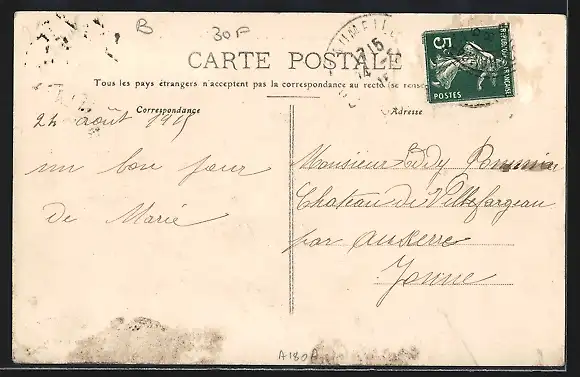 B
30F
CARTE POSTALE
Tous les pays étrangers n'acceptent pas la correspondance au recto (se
Correspondance
Adresse
5
POSTES
24 août 1915
un bon jour
de Marie
Monsieur Eddy
Chateau de Villefargeau
par Auxerre
Yonne
A180A